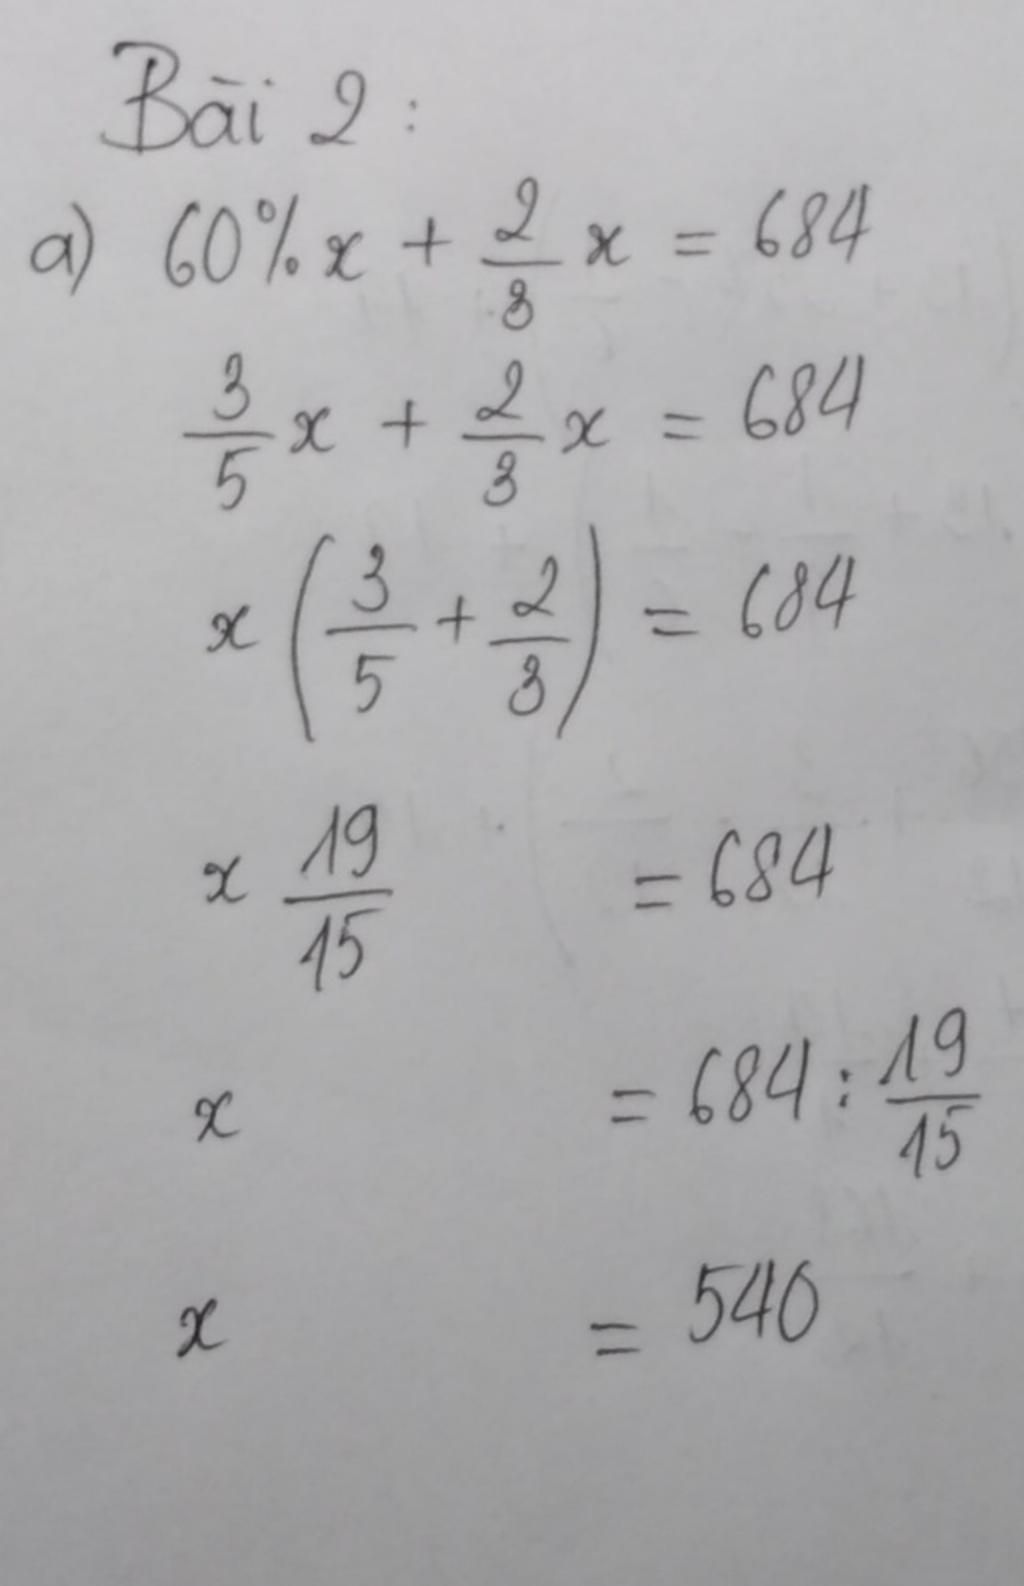 Bài 2:
a) 60%x + 2/3 x = 684
3/5 x + 2/3 x = 684
x (3/5 + 2/3) = 684
x 19/15 = 684
x = 684 : 19/15
x = 540